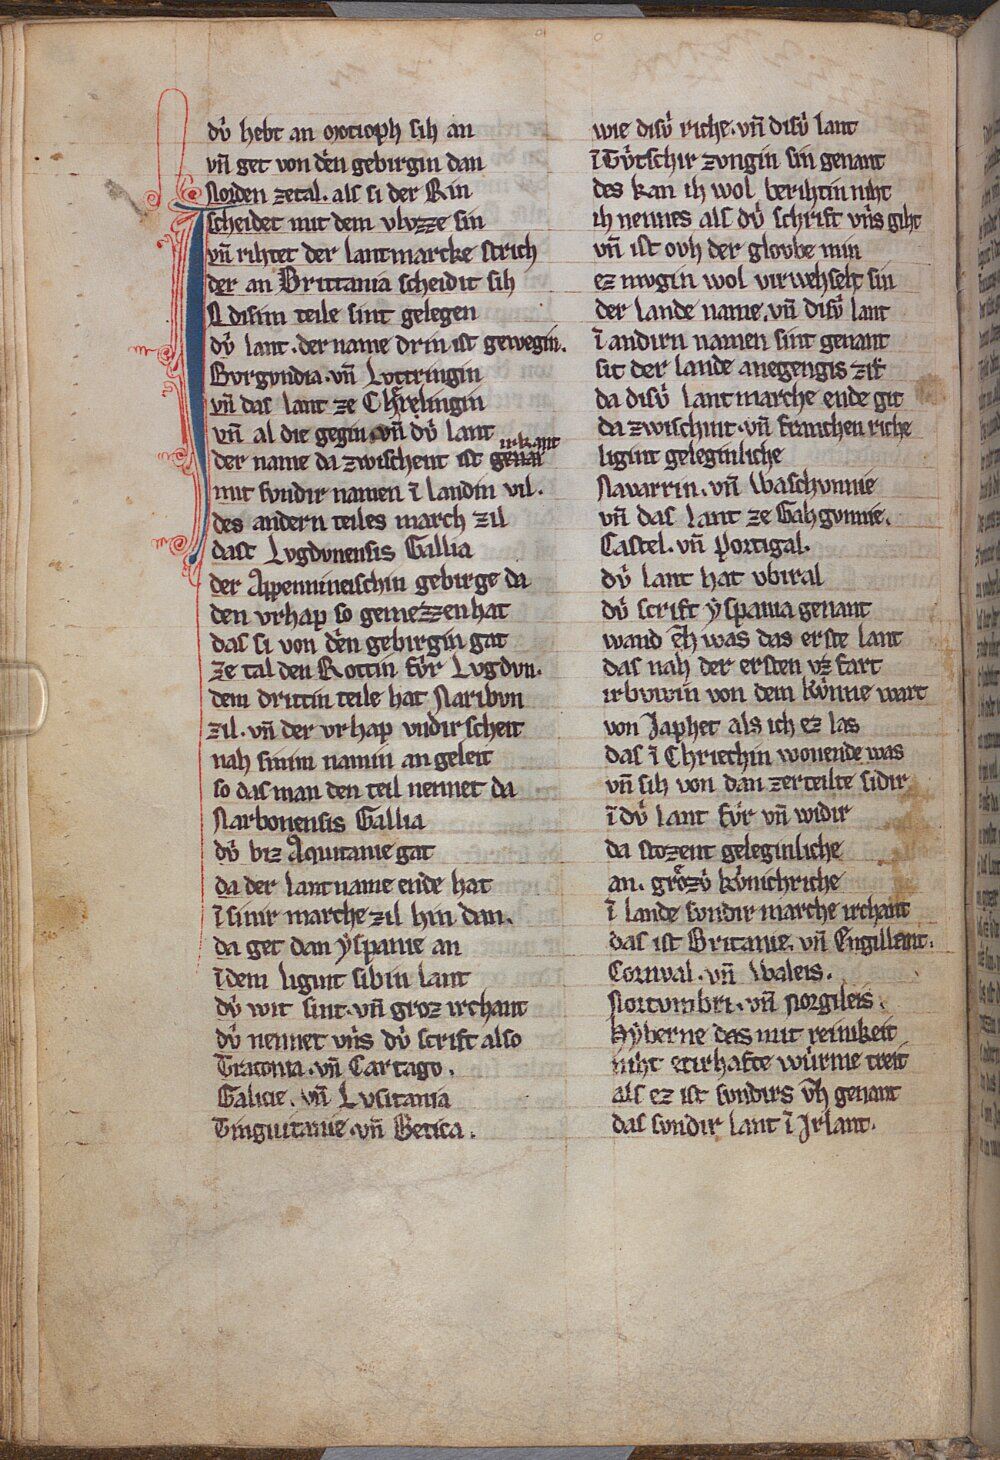 dv̓ hebt an motioph sih an
vn̄ get von dēn gebirgin dan
Norden zetal. als si der Rin
scheidet mit dem vlvzze sin
vn̄ rihtet der lantmarcke strich
der an Brittania scheidit sih
N disim teile sint gelegen
dv̓ lant. der name drin ist gewegin.
Bvrgvndia. vn̄ Lvttringin
vn̄ das lant ze Chrẽlingin
vn̄ al die gegin. vn̄ dv̓ lant
der name da zwischent ist genāt irkant
mit svndir namen ī landin vil.
des andern teiles march zil
dast Lvgdvnensis Gallia
der Appenninesschin gebirge da
den vrhap so gemezzen hat
das si von dēn gebirgin gat
ze tal den Rottin fv̓r Lvgdvn.
dem drittin teile hat Naribvn
zil. vn̄ der vrhap vndir scheit
nah sinim namin an geleit
so das man den teil nennet da
Narbonensis Gallia
dv̓ biz Aqvitanie gat
da der lantname ende hat
ī sinir marche zil hin dan.
da get dan ẏspanie an
ī dem ligint sibin lant
dv̓ wit sint. vn̄ groz irchant
dv̓ nennet vn̄s dv̓ scrift also
Traconia. vn̄ Cartago.
Galicie. vn̄ Lvsitania
Tinguitanie. vn̄ Betica.
wie disv̓ riche. vn̄ disv̓ lant
ī Tv̓tschir zvngin sin genant
des kan ih wol berihtin niht
ih nennes als dv̓ schrift vn̄s giht
vn̄ ist ovh der glovbe min
ez mvgin wol virwehselt sin
der lande name. vn̄ disv̓ lant
ī andirn namen sint genant
sit der lande anegengis zit
da disv̓ lantmarche ende git
da zwischint. vn̄ franchen riche
ligint geleginliche
Navarrin. vn̄ Waschvnnie
vn̄ das lant ze Gahgvnnie.
Castel. vn̄ Portigal.
dv̓ lant hat vbiral
dv̓ scrift ẏspania genant
wand eh was das erste lant
das nah der ersten vz fart
irbvwin von dem kv̓nne wart
von Japhet als ich ez las
das ī Chriechin wonende was
vn̄ sih von dan zerteilte sidir
ī dv̓ lant fv̓r vn̄ widir
da stozent geleginliche
an. grŏzv̓ kv̓nichriche
ī lande svndir marche irchant
das ist Britanie. vn̄ Engillant.
Cornval. vn̄ Waleis.
Nortvmbri. vn̄ Norgileis.
Hẏberne das mit reinikeit
niht eitirhafte wv̓rme treit
als ez ist svndirs vh genant
das svndir lant ī Irlant.